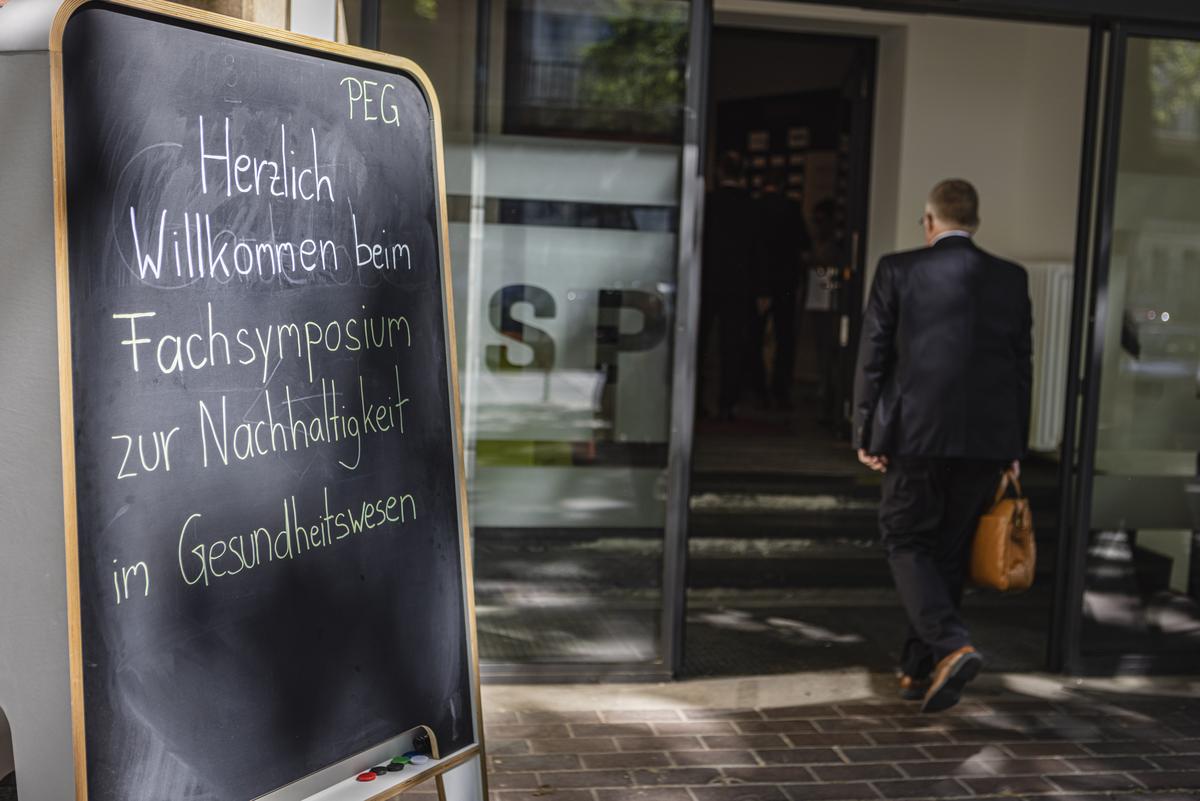 PEG
Herzlich
Willkommen beim
Fachsymposium
zur Nachhaltigkeit
im Gesundheitswesen
SP